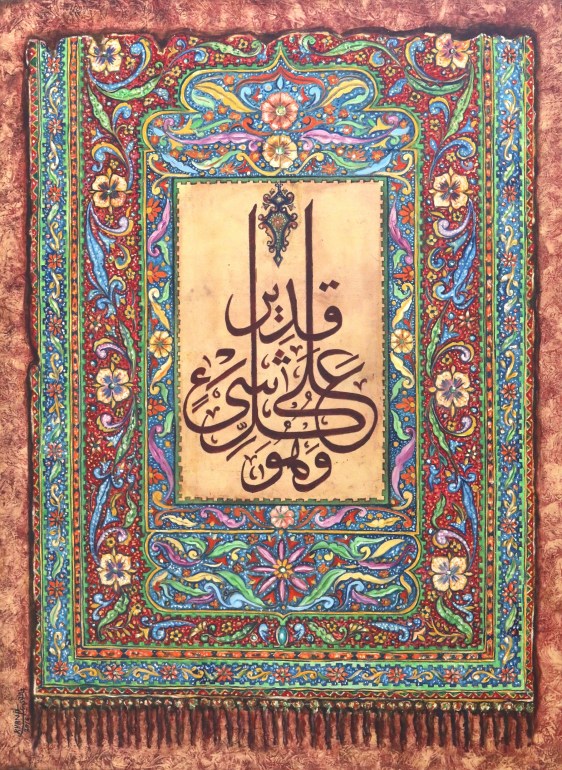 وَهُوَ
عَلَى كُلِّ شَيْءٍ
قَدِير